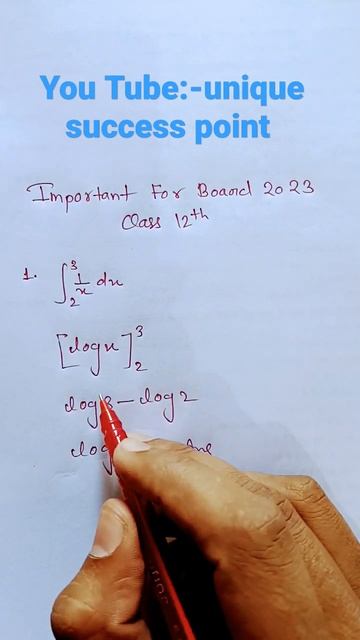 You Tube:-unique
success point
Important For Board 2023
Class 12th
1. ∫₂³ 1/x dx
[log x]₂³
log 3 – log 2
log Ans